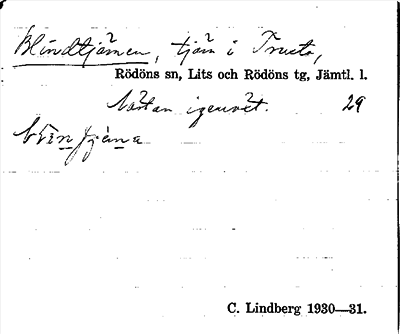 Blindtjärnen, tjärn i Trusta,
Rödöns sn, Lits och Rödöns tg, Jämtl. l.
Nästan igenväxt. 29
C. Lindberg 1930—31.